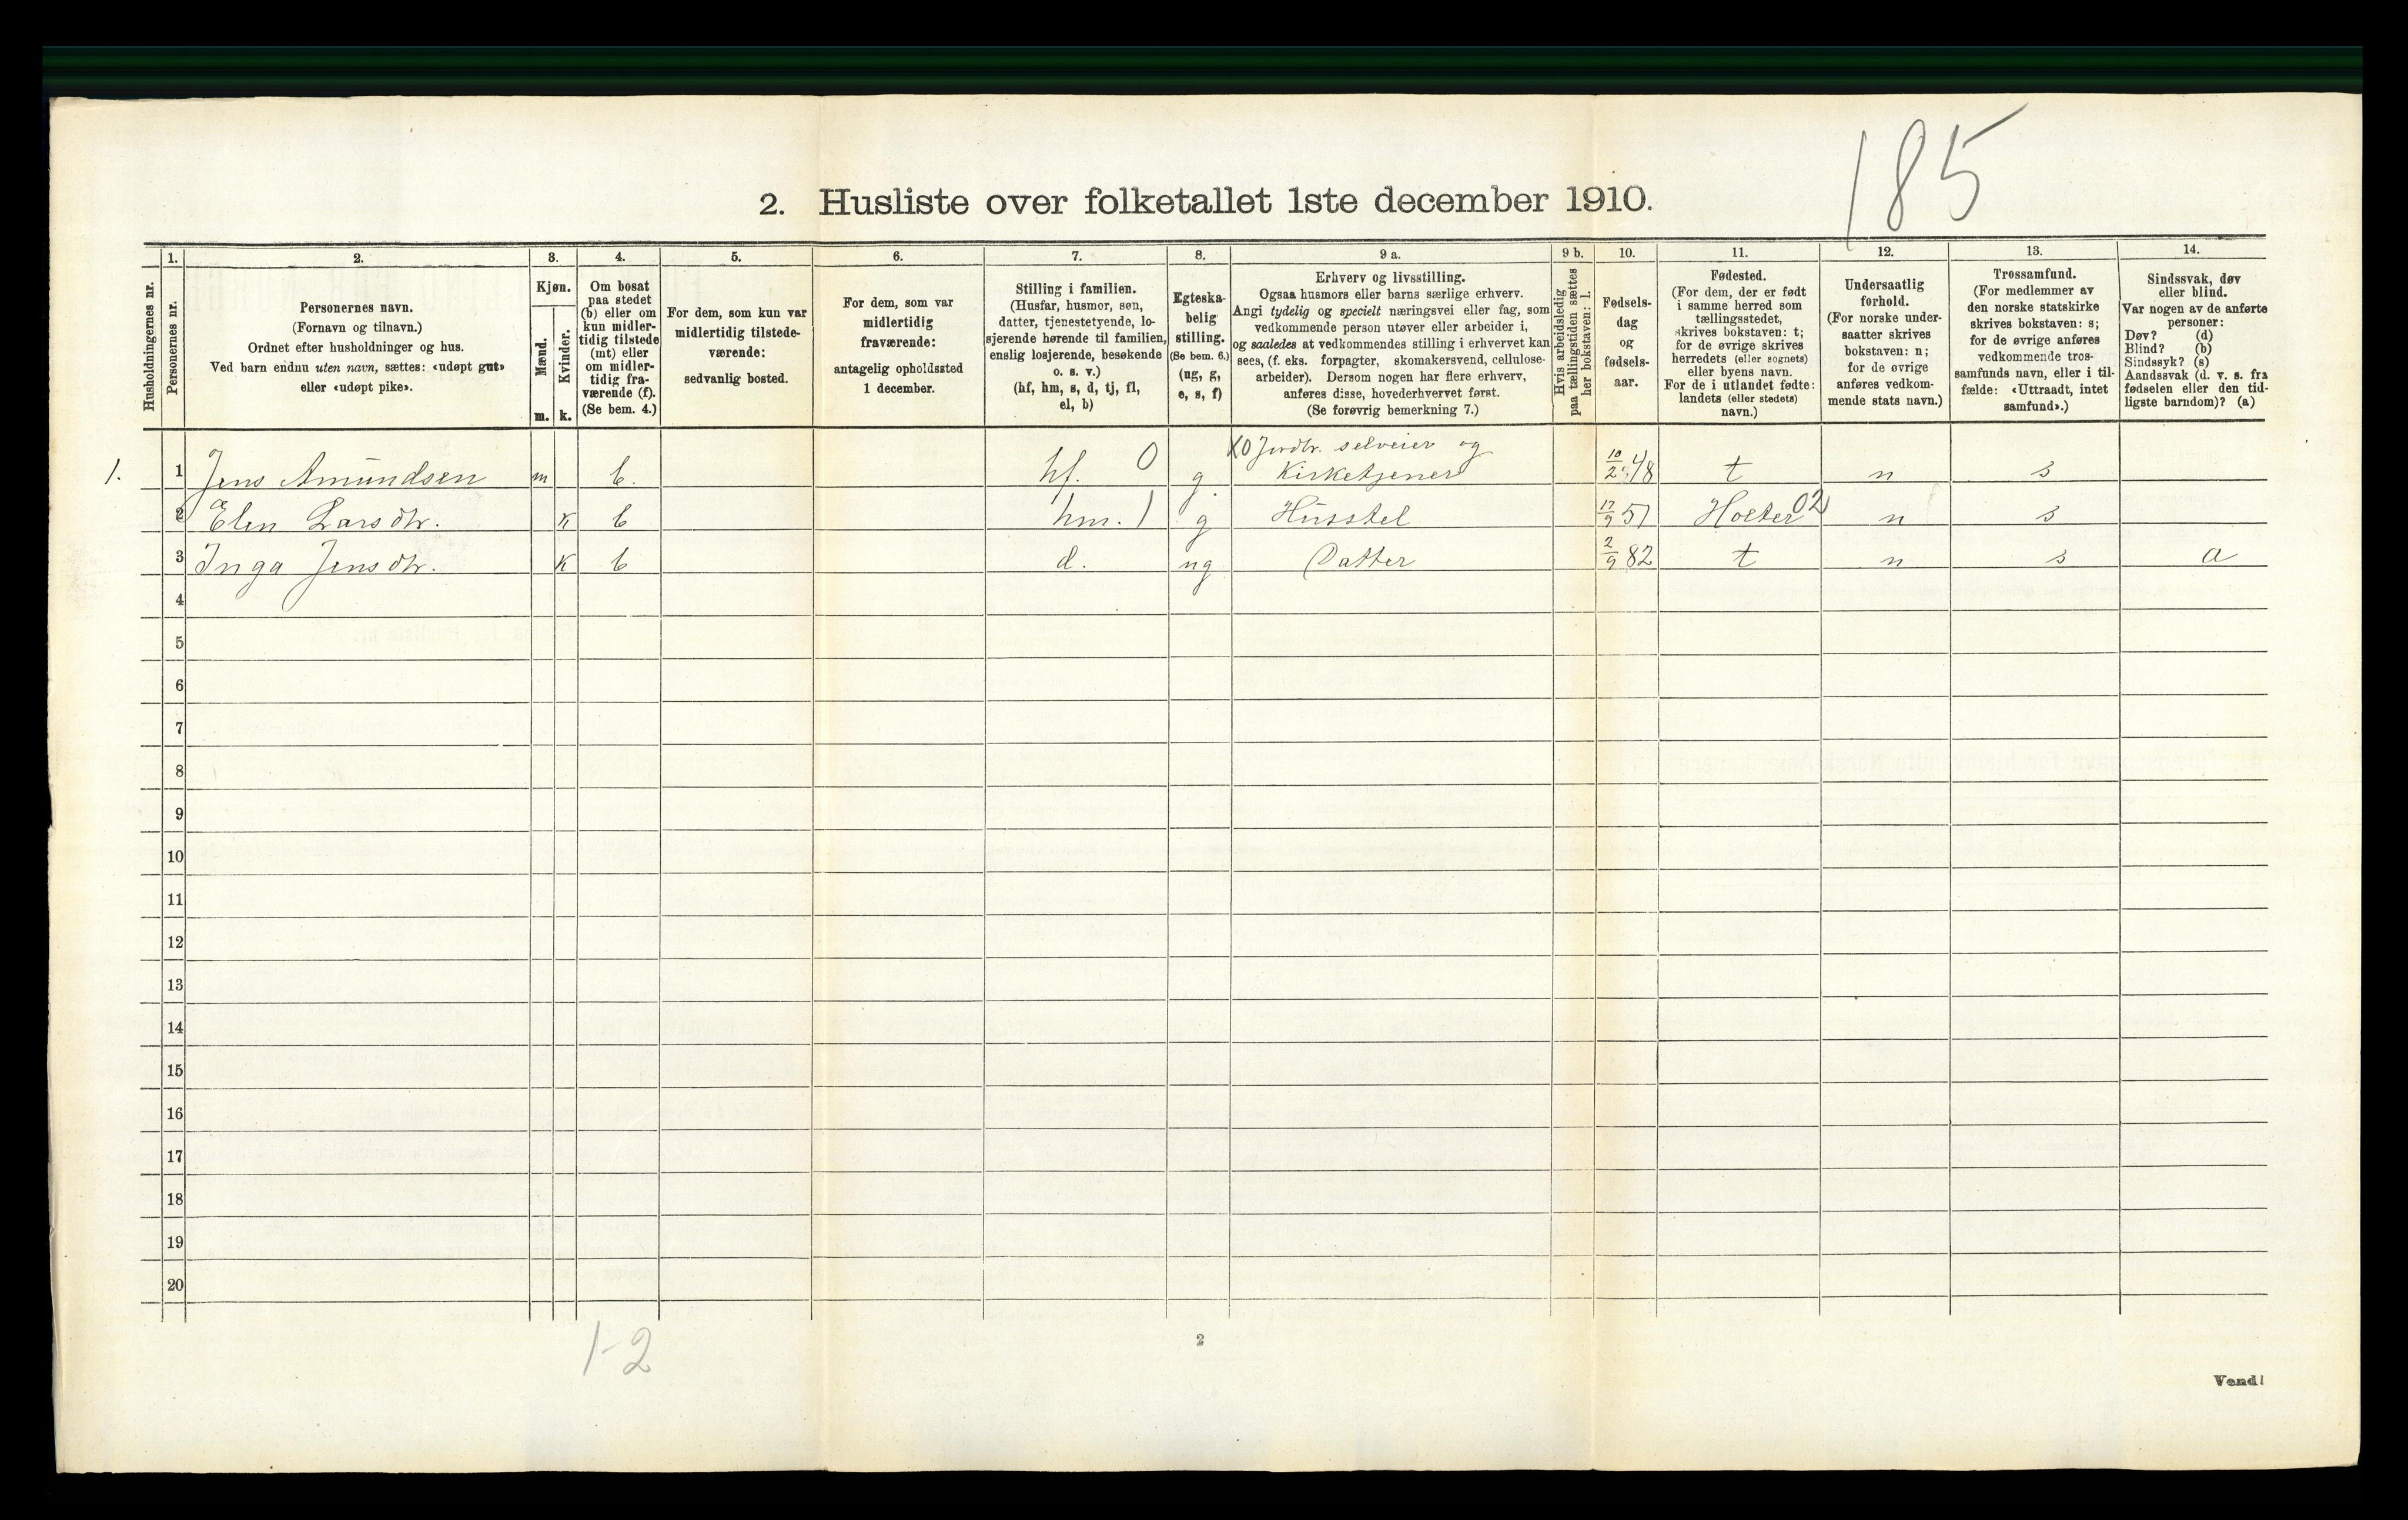 185
2. Husliste over folketallet 1ste december 1910.
Husholdningernes nr.
1.
Personernes nr.
2.
Personernes navn.
(Fornavn og tilnavn.)
Ordnet efter husholdninger og hus.
Ved barn endnu uten navn, sættes: «udøpt gut»
eller «udøpt pike».
3.
Kjøn.
Mænd.
m.
Kvinder.
k.
4.
Om bosat
paa stedet
(b) eller om
kun midler-
tidig tilstede
(mt) eller
om midler-
tidig fra-
værende (f).
(Se bem. 4.)
5.
For dem, som kun var
midlertidig tilstede-
værende:
sedvanlig bosted.
6.
For dem, som var
midlertidig
fraværende:
antagelig opholdssted
1 december.
7.
Stilling i familien.
(Husfar, husmor, søn,
datter, tjenestetyende, lo-
sjerende hørende til familien,
enslig losjerende, besøkende
o. s. v.)
(hf, hm, s, d, tj, fl,
el, b)
8.
Egteska-
belig
stilling.
(Se bem. 6.)
(ug, g,
e, s, f)
9 a.
Erhverv og livsstilling.
Ogsaa husmors eller barns særlige erhverv.
Angi tydelig og specielt næringsvei eller fag, som
vedkommende person utøver eller arbeider i,
og saaledes at vedkommendes stilling i erhvervet kan
sees, (f. eks. forpagter, skomakersvend, cellulose-
arbeider). Dersom nogen har flere erhverv,
anføres disse, hovederhvervet først.
(Se forøvrig bemerkning 7.)
9 b.
Hvis arbeidsledig
paa tællingstiden sættes
her bokstaven: l.
10.
Fødsels-
dag
og
fødsels-
aar.
11.
Fødested.
(For dem, der er født
i samme herred som
tællingsstedet,
skrives bokstaven: t;
for de øvrige skrives
herredets (eller sognets)
eller byens navn.
For de i utlandet fødte:
landets (eller stedets)
navn.)
12.
Undersaatlig
forhold.
(For norske under-
saatter skrives
bokstaven: n;
for de øvrige
anføres vedkom-
mende stats navn.)
13.
Trossamfund.
(For medlemmer av
den norske statskirke
skrives bokstaven: s;
for de øvrige anføres
vedkommende tros-
samfunds navn, eller i til-
fælde: «Uttraadt, intet
samfund».)
14.
Sindssvak, døv
eller blind.
Var nogen av de anførte
personer:
Døv? (d)
Blind? (b)
Sindssyk? (s)
Aandssvak (d. v. s. fra
fødselen eller den tid-
ligste barndom)? (a)
X0 Jordbr. selveier og
1. 1 Jens Amundsen m b. hf. 0 g Kirketjener 10/2 48 t n s
2 Elen Larsdtr. k b hm. 1 g Husstel 17/9 51 Holter 02 n s
3 Inga Jensdtr. k b d. ug Datter 2/9 82 t n s a
4
5
6
7
8
9
10
11
12
13
14
15
16
17
18
19
20
1-2
2
Vend!